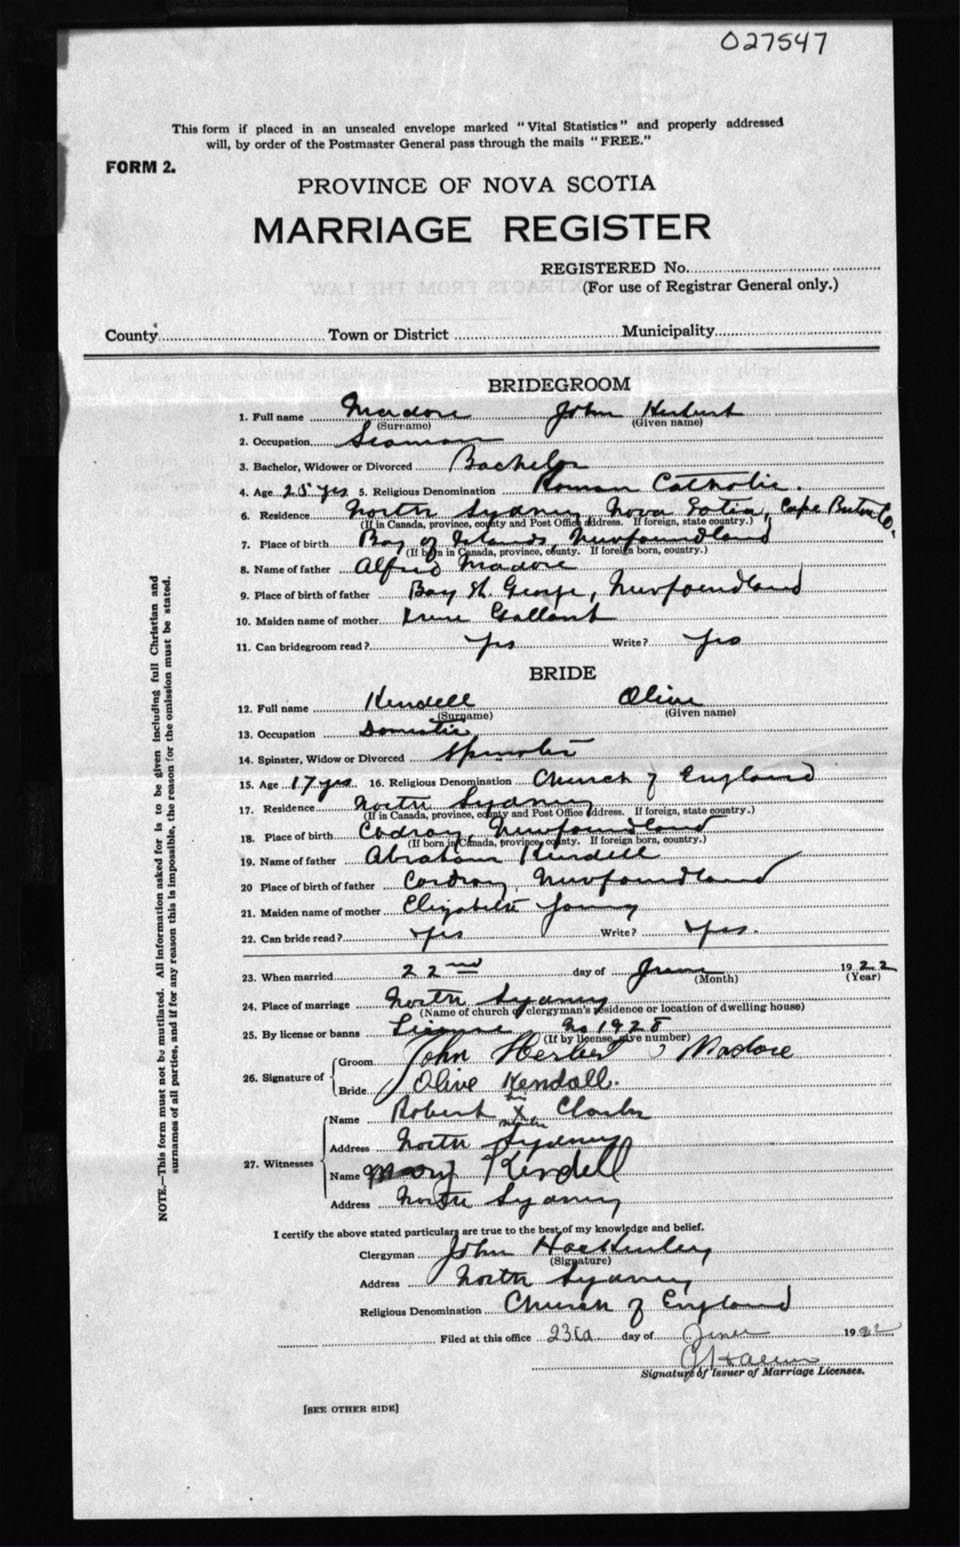 027547
This form if placed in an unsealed envelope marked "Vital Statistics" and properly addressed
will, by order of the Postmaster General pass through the mails "FREE."
FORM 2.
PROVINCE OF NOVA SCOTIA
MARRIAGE REGISTER
REGISTERED No.
(For use of Registrar General only.)
County Town or District Municipality
BRIDEGROOM
1. Full name Madore John Herbert
(Surname) (Given name)
2. Occupation Seaman
3. Bachelor, Widower or Divorced Bachelor
4. Age 25 yrs 5. Religious Denomination Roman Catholic.
6. Residence North Sydney, Nova Scotia, Cape Breton Co.
(If in Canada, province, county and Post Office address. If foreign, state country.)
7. Place of birth Bay of Islands, Newfoundland
(If born in Canada, province, county. If foreign born, country.)
8. Name of father Alfred Madore
9. Place of birth of father Bay St. George, Newfoundland
10. Maiden name of mother Gallant
11. Can bridegroom read? Yes Write? Yes
BRIDE
12. Full name Kendell Olive
(Surname) (Given name)
13. Occupation Domestic
14. Spinster, Widow or Divorced Spinster
15. Age 17 yrs. 16. Religious Denomination Church of England
17. Residence North Sydney
(If in Canada, province, county and Post Office address. If foreign, state country.)
18. Place of birth Codroy, Newfoundland
(If born in Canada, province, county. If foreign born, country.)
19. Name of father Abraham Kendell
20 Place of birth of father Cordroy, Newfoundland
21. Maiden name of mother Elizabeth Young
22. Can bride read? Yes Write? Yes.
23. When married 22nd day of June 1922
(Month) (Year)
24. Place of marriage North Sydney
(Name of church or clergyman's residence or location of dwelling house)
25. By license or banns License No 1928
(If by license, give number)
26. Signature of Groom John Herbert Madore
Bride Olive Kendall.
27. Witnesses Name Robert X
Address North Sydney
Name Mary Kendell
Address North Sydney
I certify the above stated particulars are true to the best of my knowledge and belief.
Clergyman John
(Signature)
Address North Sydney
Religious Denomination Church of England
Filed at this office 23rd day of June 1922
Signature of Issuer of Marriage Licenses.
[SEE OTHER SIDE]
NOTE.—This form must not be mutilated. All information asked for is to be given including full Christian and
surnames of all parties, and if for any reason this is impossible, the reason for the omission must be stated.